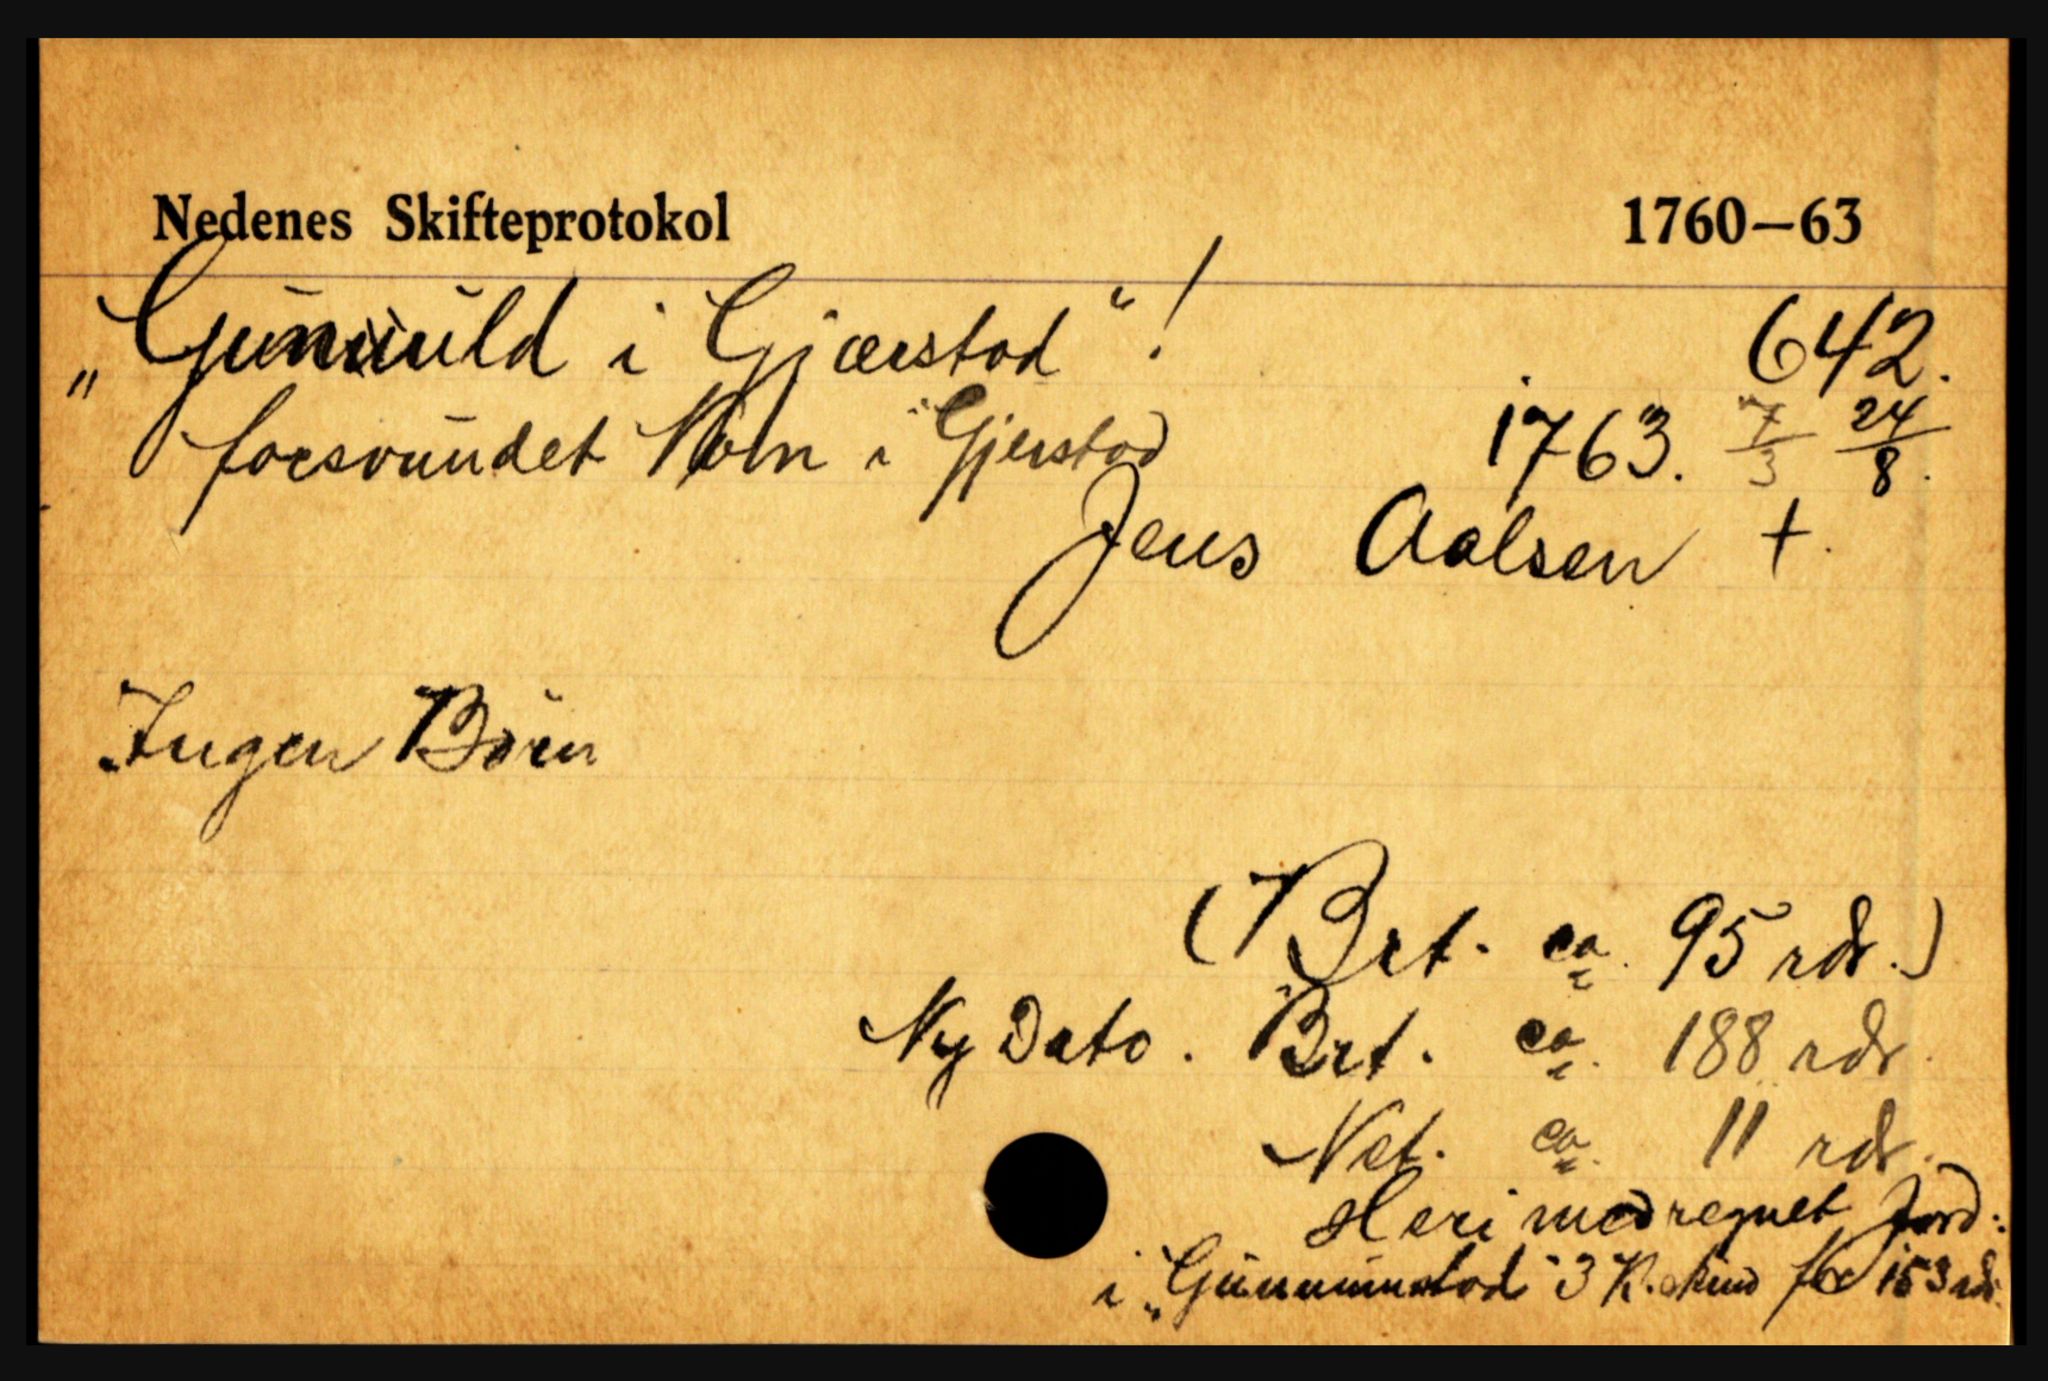 Nedenes Skifteprotokol 1760—63
„Gunnuld i Gjærstad“! 642.
forsvundet Navn i Gjerstad 1763. 7/3 24/8.
Jens Aalsen +.
Ingen Börn
(Brt. ca. 95 rdr.)
Ny Dato. Brt. ca. 188 rdr.
Net. ca. 11 rdr.
Heri medregnet Jord:
i „Gunnunstad“ 3 K.skind for 153 rdr.